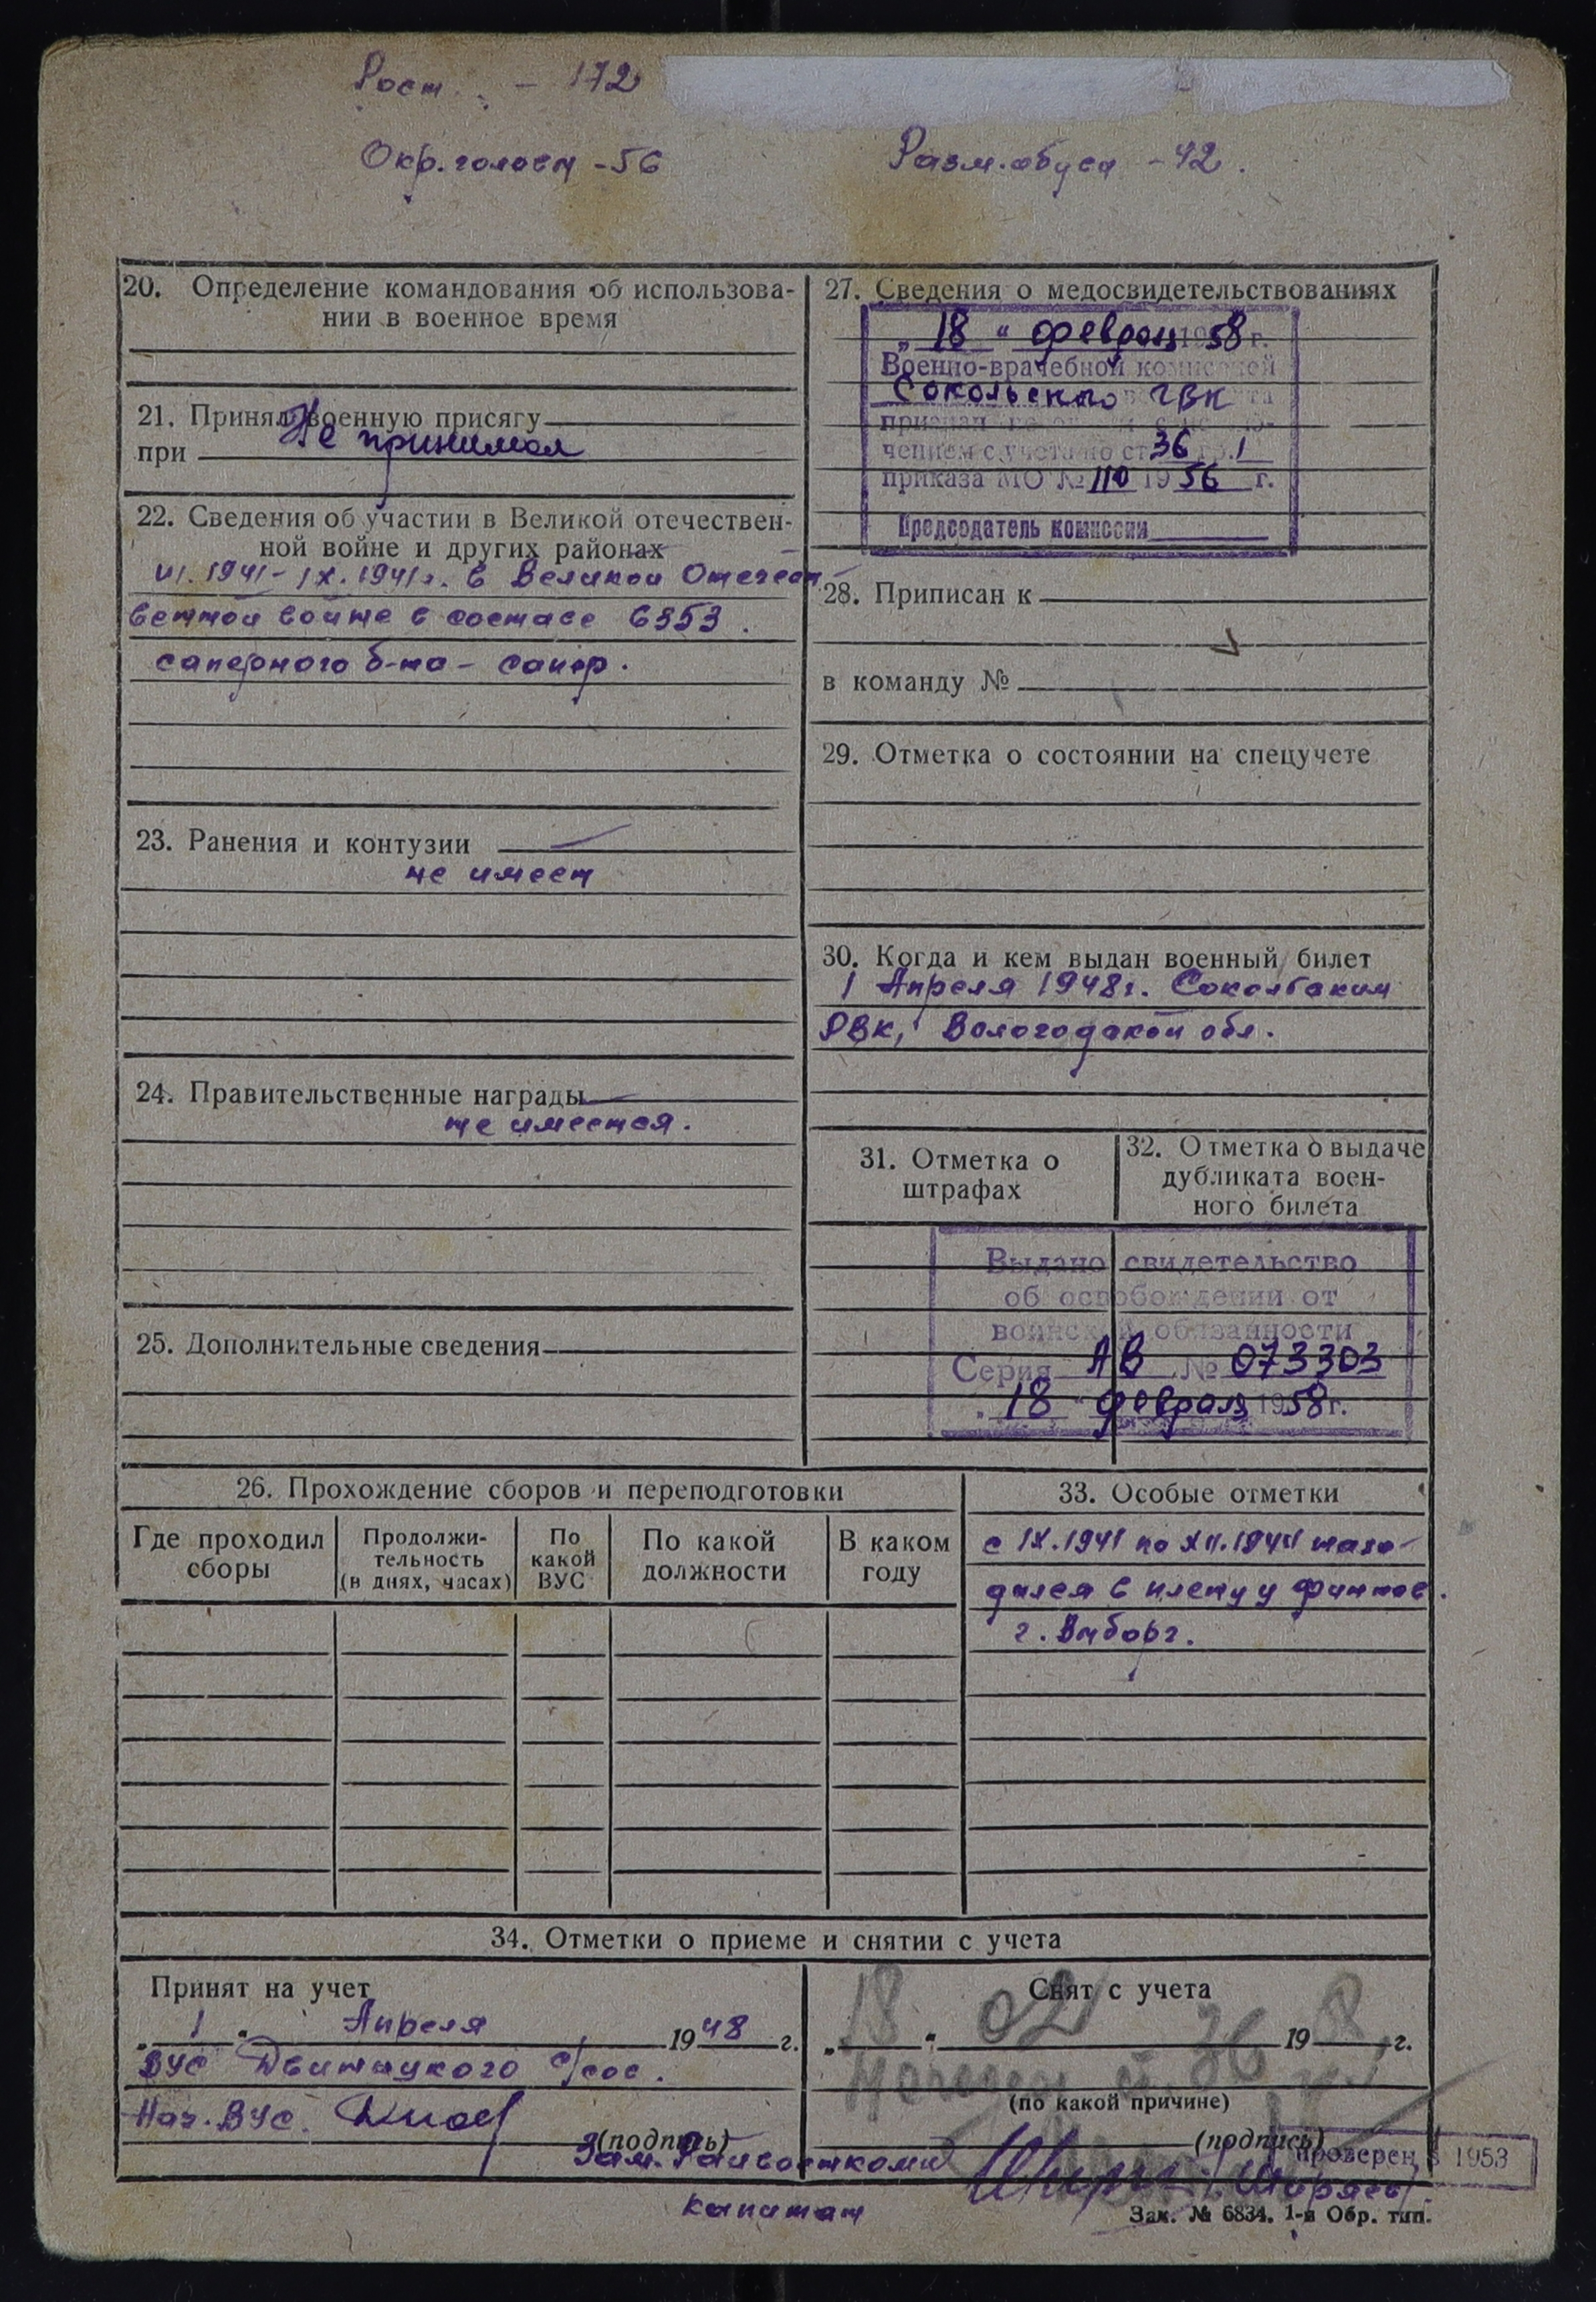 Рост. - 172
Окр. головы - 56
Разм. обуви - 42.
20. Определение командования об использова-
нии в военное время
21. Принял военную присягу
Не принимал
при
22. Сведения об участии в Великой отечествен-
ной войне и других районах
VI.1941 - IX.1941г. в Великой Отечест-
венной войне в составе 6353
саперного б-на - сапер.
23. Ранения и контузии
не имеет
24. Правительственные награды
не имеется.
25. Дополнительные сведения
27. Сведения о медосвидетельствованиях
„18“ февраля 1958 г.
Военно-врачебной комиссией
Сокольского ГВК
признан
чением с учета по ст 36 гр. 1
приказа МО № 110 1956 г.
Председатель комиссии
28. Приписан к
в команду №
29. Отметка о состоянии на спецучете
30. Когда и кем выдан военный билет
1 Апреля 1948г. Сокольским
РВК, Вологодской обл.
31. Отметка о
штрафах
32. Отметка о выдаче
дубликата воен-
ного билета
Выдано свидетельство
об освобождении от
воинской обязанности
Серия АВ № 073303
„18“ февраля 1958г.
26. Прохождение сборов и переподготовки
Где проходил
сборы
Продолжи-
тельность
(в днях, часах)
По
какой
ВУС
По какой
должности
В каком
году
33. Особые отметки
с IX.1941 по XII.1944 нахо-
дился в плену у финнов.
г. Выборг.
34. Отметки о приеме и снятии с учета
Принят на учет
„1“ Апреля 1948 г.
ВУС Двиницкого с/сов.
Нач. ВУС.
(подпись)
Снят с учета
„18“ 02 1958 г.
ст. 36
(по какой причине)
(подпись)
Зам. Райвоенкома
капитан
проверен в 1953
Зак. № 6834. 1-я Обр. тип.